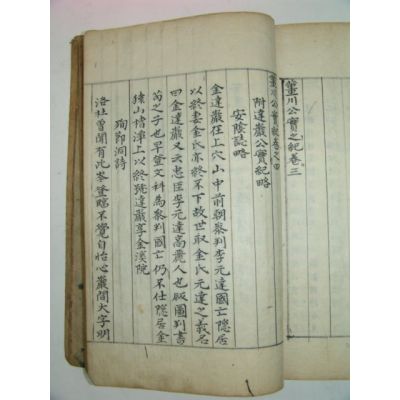 菫川公實紀卷三
菫川公實紀卷之四
附達巖公實紀略
安陰誌略
金達巖在上穴山中前朝叅判李元達國亡隱居
以終妻金氏亦終不下故世取金氏元達之義名
曰金達巖又云忠臣李元達高麗人也版圖判書
芮之子也早登文科爲叅判國亡仍不仕隱居金
猿山 津上以終號達巖享金溪院
殉節洞詩
洛社曾聞有此岑登臨不覺自怡心巖間大字明